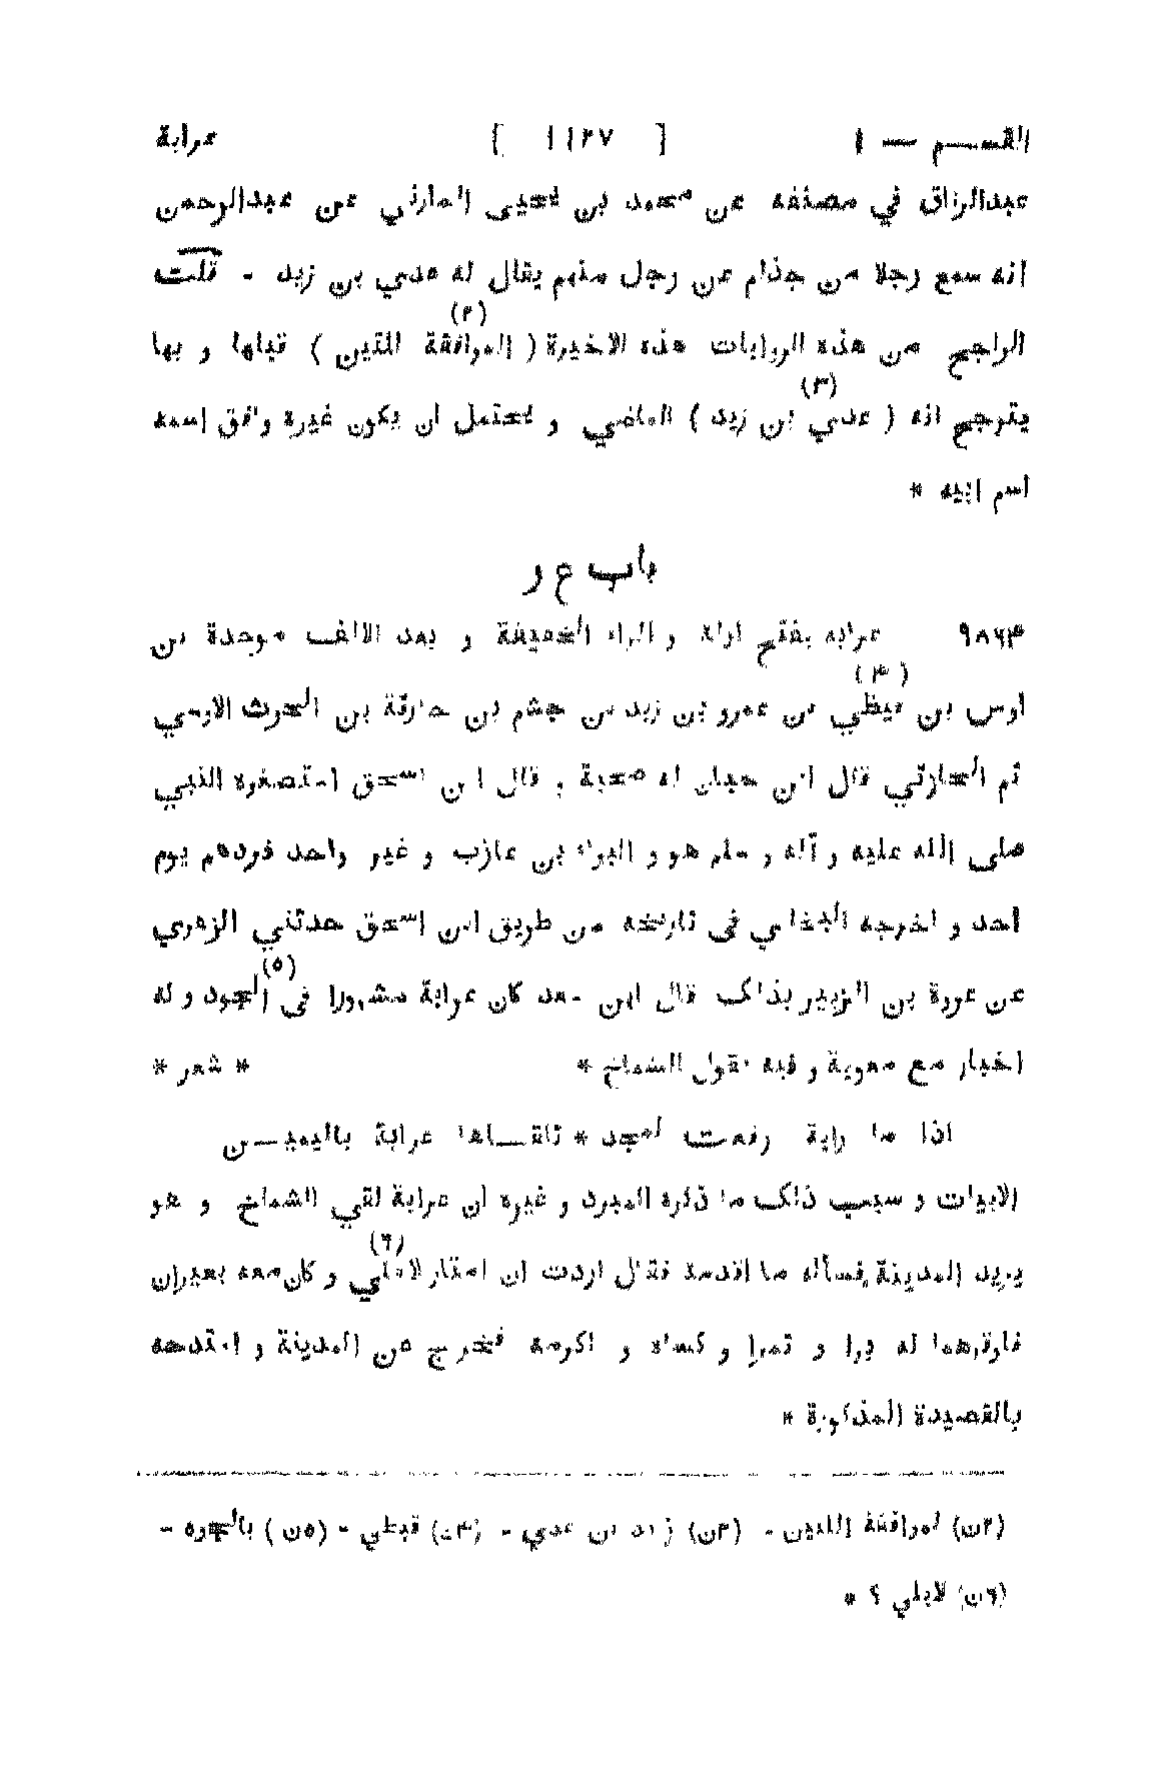 القسم — ١ [ ١١٢٧ ] عرابة
عبدالرزاق في مصنفه عن محمد بن يحيى المازني عن عبدالرحمن
انه سمع رجلا من جذام عن رجل منهم يقال له عدي بن زيد - قلت
الراجح من هذه الروايات هذه الاخيرة ( الموافقة للتين (٢) ) قبلها و بها
يترجح انه ( عدي بن زيد (٣) ) الماضي و يحتمل ان يكون غيره وافق اسمه
اسم ابيه *
باب ع ر
٩٨٦٣ عرابه بفتح اوله و الراء الخفيفة و بعد الالف موحدة بن
اوس بن قيظي (٤) بن عمرو بن زيد بن جشم بن حارثة بن الحرث الاوسي
ثم الحارثي قال ابن حبان له صحبة و قال ابن اسحق استصغره النبي
صلى الله عليه و آله و سلم هو و البراء بن عازب و غير واحد فردهم يوم
احد و اخرجه البخاري في تاريخه من طريق ابن اسحق حدثني الزهري
عن عروة بن الزبير بذلك قال ابن سعد كان عرابة مشهورا في الجود (٥) و له
اخبار مع معوية و فيه يقول الشماخ * * شعر *
اذا ما راية رفعت لمجد * تلقـاها عرابة باليميـن
الابيات و سبب ذلك ما ذكره المبرد و غيره ان عرابة لقي الشماخ و هو
يريد المدينة فسأله ما اقدمه فقال اردت ان امتار لاهلي (٦) و كان معه بعيران
فاوقرهما له برا و تمرا و كساه و اكرمه فخرج عن المدينة و امتدحه
بالقصيدة المذكورة *
(٢ن) لموافقة اللتين - (٣ن) زيد بن عدي - (٤ن) قبطي - (٥ن ) بالجوده -
(٦ن) لابلي ؟ *